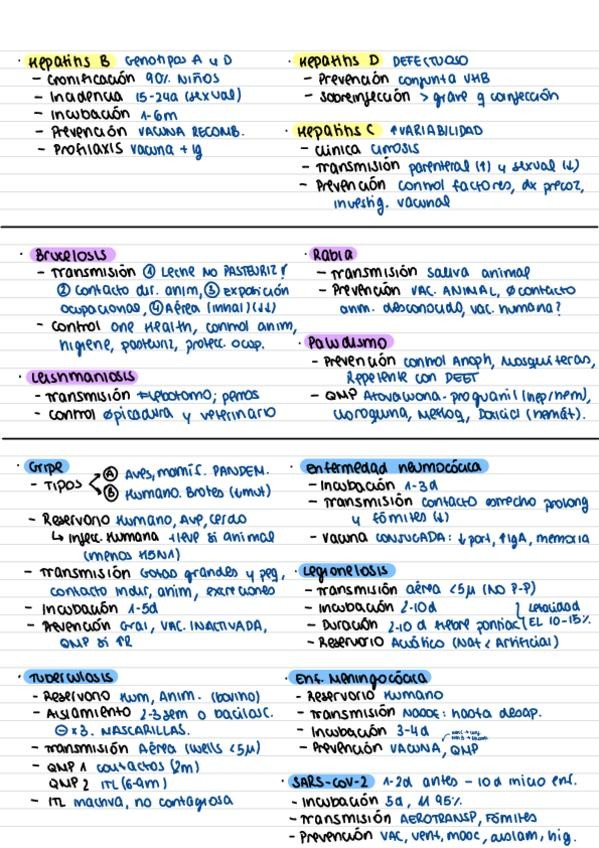 · Hepatitis B Genotipos A y D
- Cronificación 90% NIÑOS
- Incidencia 15-24a (sexual)
- Incubación 1-6m
- Prevención VACUNA RECOMB.
- Profilaxis vacuna + Ig
· Hepatitis D DEFECTUOSO
- Prevención conjunta VHB
- Sobreinfección > grave q coinfección
· Hepatitis C ↑VARIABILIDAD
- Clínica cirrosis
- Transmisión parenteral (↑) y sexual (↓)
- Prevención control factores, dx precoz,
investig. vacunal
· Brucelosis
- Transmisión ① Leche NO PASTEURIZ!
② Contacto dir. anim, ③ Exposición
ocupacional, ④ Aérea (inhal)(↓↓)
- Control One Health, control anim,
higiene, pasteuriz, protecc. ocup.
· Leishmaniosis
- Transmisión Flebotomo; perros
- Control Øpicadura y veterinario
· Rabia
- Transmisión saliva animal
- Prevención VAC. ANIMAL, Øcontacto
anim. desconocido, vac. humana?
· Paludismo
- Prevención control Anoph, Mosquiteras,
Repelente con DEET
- QMP Atovacuona-proguanil (hep/hem),
cloroquina, Mefloq, Doxicicl (hemát).
· Gripe
- TIPOS Ⓐ Aves, mamíf. PANDEM.
Ⓑ Humano. Brotes (↓mut)
- Reservorio Humano, Ave, cerdo
↳ Infecc. Humana +leve si animal
(menos H5N1)
- Transmisión Gotas grandes y peq,
contacto indir, anim, excreciones
- Incubación 1-5d
- Prevención Gral, VAC. INACTIVADA,
QMP si FR
· Enfermedad neumocócica
- Incubación 1-3d
- Transmisión contacto estrecho prolong
y fómites (↓)
- Vacuna CONJUGADA: ↓port, ↑IgA, memoria
· Legionelosis
- Transmisión aérea <5µ (NO P-P)
- Incubación 2-10d
- Duración 2-10 d Fiebre pontiac
Letalidad
EL 10-15%
- Reservorio Acuático (Nat < Artificial)
· Tuberculosis
- Reservorio Hum, Anim. (bovino)
- Aislamiento 2-3sem o bacilosc.
⊖ x3. MASCARILLAS.
- Transmisión Aérea (wells <5µ)
- QMP 1 contactos (2m)
QMP 2 ITL (6-9m)
- ITL inactiva, no contagiosa
· Enf. Meningocócica
- Reservorio Humano
- Transmisión hasta desap.
- Incubación 3-4d
- Prevención VACUNA, QMP
· SARS-COV-2 1-2d antes - 10d inicio enf.
- Incubación 5d, 95%
- Transmisión AEROTRANSP, Fómites
- Prevención VAC, vent, masc, aislam, hig.